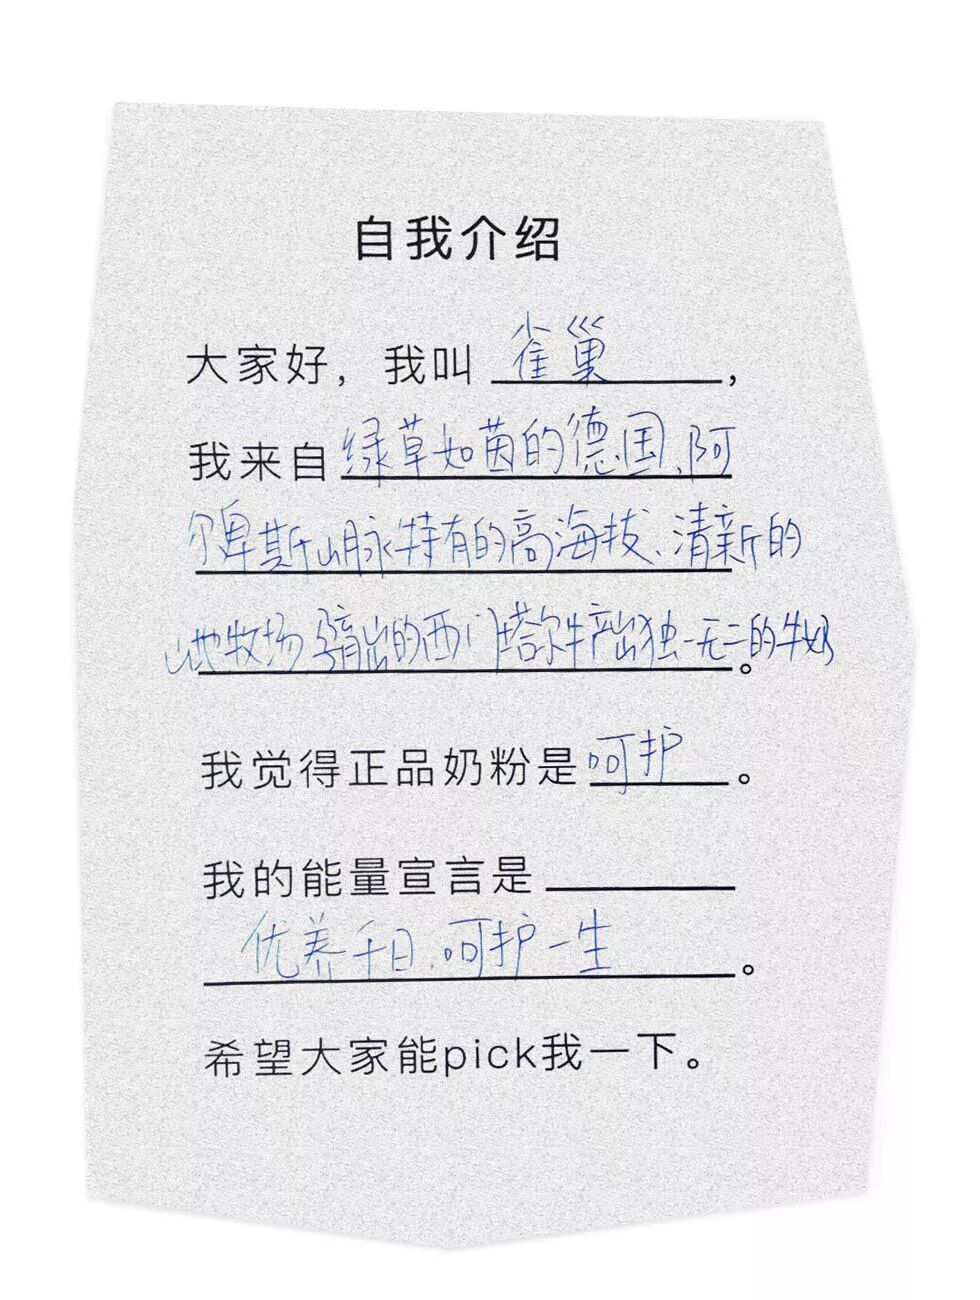 自我介绍
大家好，我叫雀巢，
我来自绿草如茵的德国、阿
尔卑斯山脉特有的高海拔、清新的
山地牧场孕育出的西门塔尔牛产出独一无二的牛奶。
我觉得正品奶粉是呵护。
我的能量宣言是
优养千日、呵护一生。
希望大家能pick我一下。